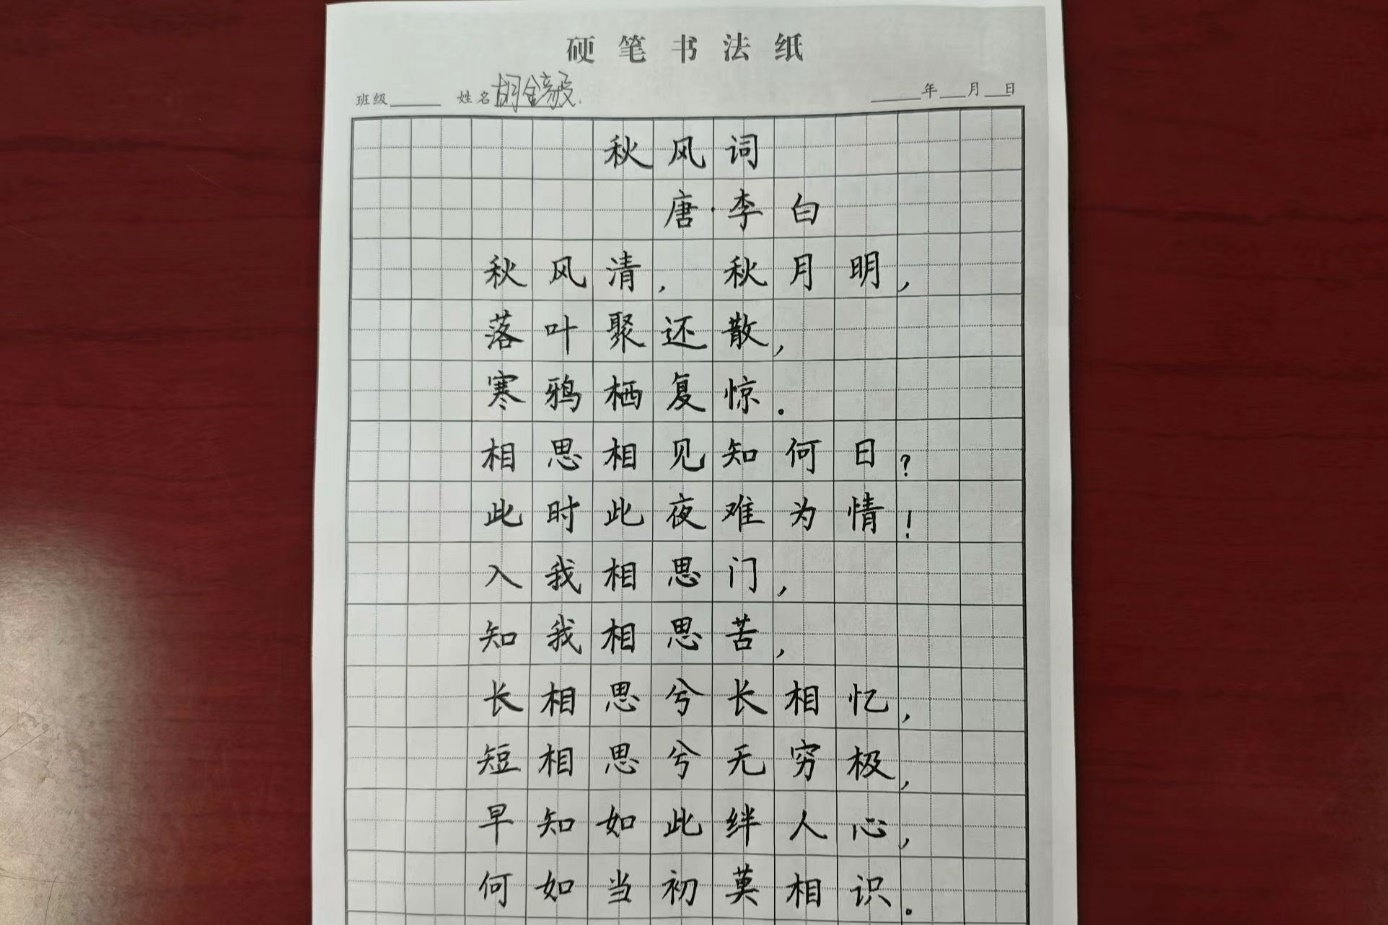 硬笔书法纸
班级 姓名 年 月 日
秋风词
唐·李白
秋风清，秋月明，
落叶聚还散，
寒鸦栖复惊．
相思相见知何日？
此时此夜难为情！
入我相思门，
知我相思苦，
长相思兮长相忆，
短相思兮无穷极，
早知如此绊人心，
何如当初莫相识．